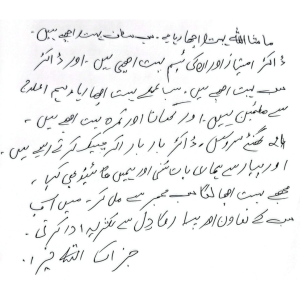 ماشاءاللہ بہت اچھا رہا ہے۔ سب سٹاف بہت اچھے ہیں۔
ڈاکٹر امتیاز اور ان کی ٹیم بہت اچھی ہیں۔ اور ڈاکٹر
سب بہت اچھے ہیں۔ سب عملہ بہت اچھا رہا
سے مطمئن ہیں۔ اور کھانا اور کمرہ بہت اچھے ہیں۔
24 گھنٹے سروس۔ ڈاکٹر بار بار آکر چیک کرتے رہے ہیں۔
اور پیار سے ہماری بات سنی اور ہمیں گائیڈ بھی کیا۔
مجھے بہت اچھا لگا سب ممبر سے مل کر۔ میں آپ
سب کے تعاون اور پیار کا دل سے شکریہ ادا کرتی۔
جزاک اللہ خیر۔